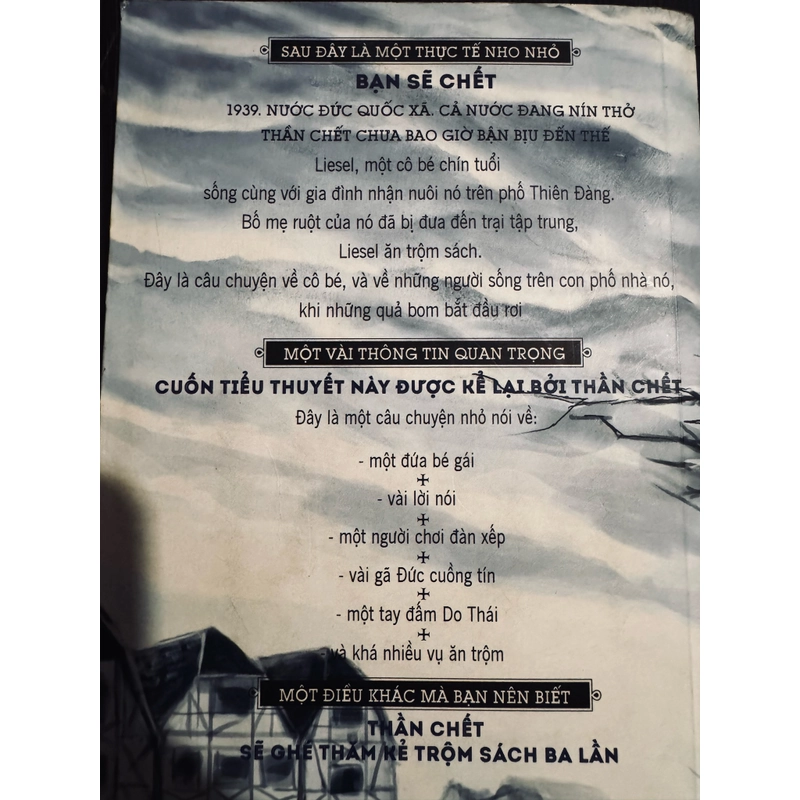 SAU ĐÂY LÀ MỘT THỰC TẾ NHO NHỎ
BẠN SẼ CHẾT
1939. NƯỚC ĐỨC QUỐC XÃ. CẢ NƯỚC ĐANG NÍN THỞ
THẦN CHẾT CHƯA BAO GIỜ BẬN BỊU ĐẾN THẾ
Liesel, một cô bé chín tuổi
sống cùng với gia đình nhận nuôi nó trên phố Thiên Đàng.
Bố mẹ ruột của nó đã bị đưa đến trại tập trung,
Liesel ăn trộm sách.
Đây là câu chuyện về cô bé, và về những người sống trên con phố nhà nó,
khi những quả bom bắt đầu rơi
MỘT VÀI THÔNG TIN QUAN TRỌNG
CUỐN TIỂU THUYẾT NÀY ĐƯỢC KỂ LẠI BỞI THẦN CHẾT
Đây là một câu chuyện nhỏ nói về:
- một đứa bé gái
- vài lời nói
- một người chơi đàn xếp
- vài gã Đức cuồng tín
- một tay đấm Do Thái
- và khá nhiều vụ ăn trộm
MỘT ĐIỀU KHÁC MÀ BẠN NÊN BIẾT
THẦN CHẾT
SẼ GHÉ THĂM KẺ TRỘM SÁCH BA LẦN